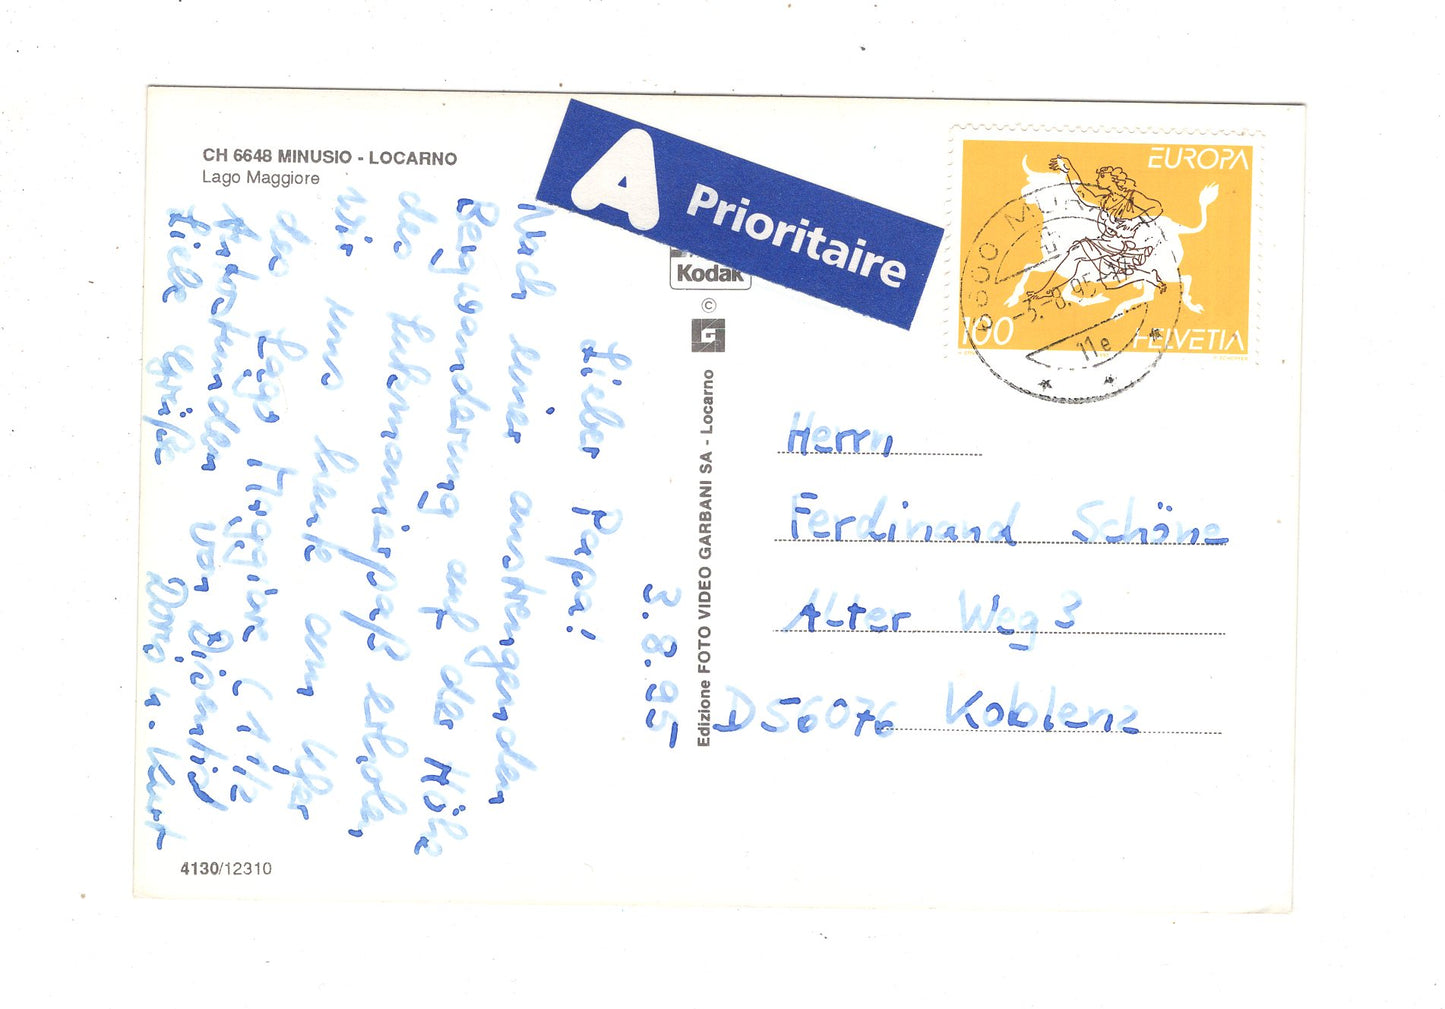 CH 6648 MINUSIO - LOCARNO
Lago Maggiore
A Prioritaire
Kodak
©
G
Edizione FOTO VIDEO GARBANI SA - Locarno
EUROPA
100
HELVETIA
-3.-8.95
11e
3.8.95
Lieber Papa!
Nach einer anstrengenden
Bergwanderung auf der Höhe
des Lukmanierpaß erholen
wir uns heute am Ufer
des Lago Maggiore (1 1/2
Autostunden von Disentis)
Liebe Grüße Doro u. Kurt
Herrn
Ferdinand Schöne
Alter Weg 3
D 56076 Koblenz
4130/12310